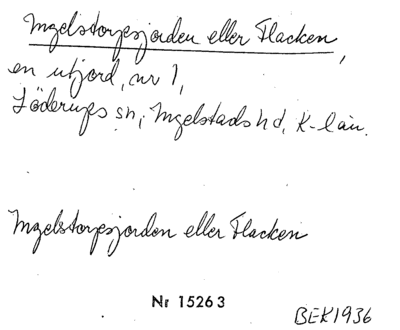 Ingelstorpsjorden eller Flacken,
en utjord, nr 1,
Löderups sn, Ingelstads hd, K-län.
Ingelstorpsjorden eller Flacken
Nr 15263
BEK1936